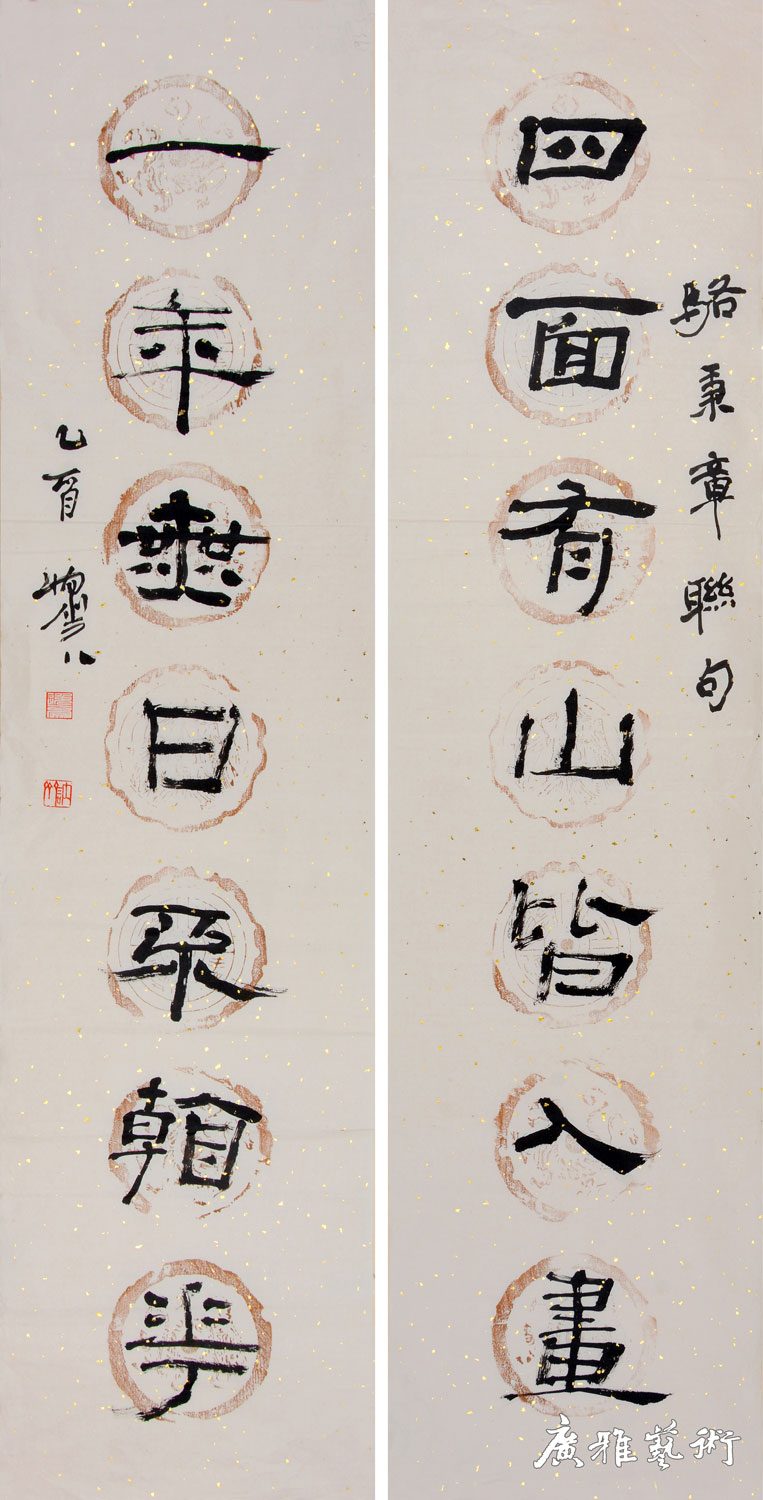 四面有山皆入畫
駱秉章聯句
一年無日不看華
乙酉
廣雅藝術